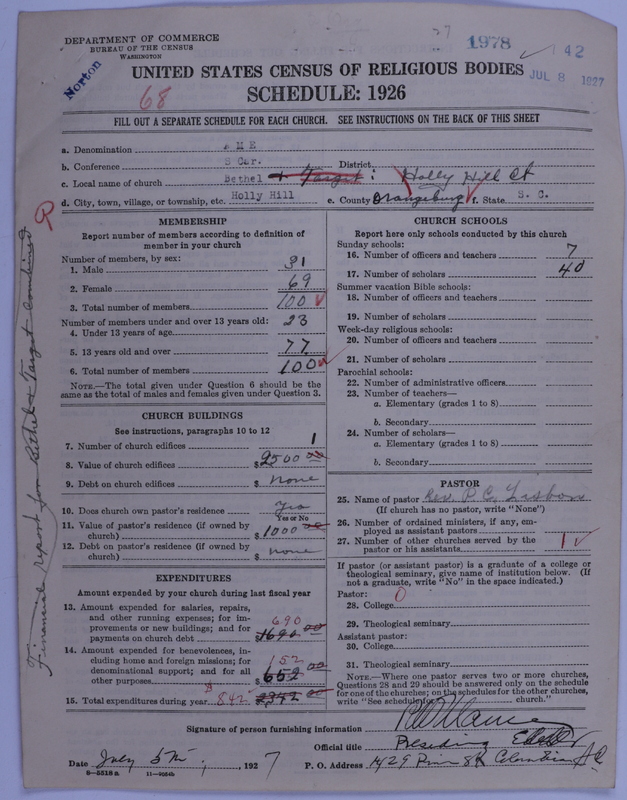 DEPARTMENT OF COMMERCE
BUREAU OF THE CENSUS
WASHINGTON
Norton
27
1978
142
JUL 8 1927
UNITED STATES CENSUS OF RELIGIOUS BODIES
68
SCHEDULE: 1926
FILL OUT A SEPARATE SCHEDULE FOR EACH CHURCH. SEE INSTRUCTIONS ON THE BACK OF THIS SHEET
a. Denomination A M E
b. Conference S Car. District
c. Local name of church Bethel + Target : Holly Hill Ct
d. City, town, village, or township, etc. Holly Hill e. County Orangeburg f. State S. C.
Financial report for Bethel & Target Combined
MEMBERSHIP
Report number of members according to definition of member in your church
Number of members, by sex:
1. Male 31
2. Female 69
3. Total number of members 100
Number of members under and over 13 years old:
4. Under 13 years of age 23
5. 13 years old and over 77
6. Total number of members 100
NOTE.—The total given under Question 6 should be the
same as the total of males and females given under Question 3.
CHURCH BUILDINGS
See instructions, paragraphs 10 to 12
7. Number of church edifices 1
8. Value of church edifices $2500 00
9. Debt on church edifices $ none
10. Does church own pastor's residence Yes
Yes or No
11. Value of pastor's residence (if owned by
church) $1000 00
12. Debt on pastor's residence (if owned by
church) $ none
EXPENDITURES
Amount expended by your church during last fiscal year
13. Amount expended for salaries, repairs,
and other running expenses; for im- 690
provements or new buildings; and for
payments on church debt $1690 00
14. Amount expended for benevolences, in-
cluding home and foreign missions; for 152
denominational support; and for all
other purposes $652 00
15. Total expenditures during year $842 2342 00
CHURCH SCHOOLS
Report here only schools conducted by this church
Sunday schools:
16. Number of officers and teachers 7
17. Number of scholars 40
Summer vacation Bible schools:
18. Number of officers and teachers
19. Number of scholars
Week-day religious schools:
20. Number of officers and teachers
21. Number of scholars
Parochial schools:
22. Number of administrative officers
23. Number of teachers—
a. Elementary (grades 1 to 8)
b. Secondary
24. Number of scholars—
a. Elementary (grades 1 to 8)
b. Secondary
PASTOR
25. Name of pastor Rev. P. C. Lisbon
(If church has no pastor, write "None")
26. Number of ordained ministers, if any, em-
ployed as assistant pastors
27. Number of other churches served by the
pastor or his assistants 1
If pastor (or assistant pastor) is a graduate of a college or
theological seminary, give name of institution below. (If
not a graduate, write "No" in the space indicated.)
Pastor: 0
28. College
29. Theological seminary
Assistant pastor:
30. College
31. Theological seminary
NOTE.—Where one pastor serves two or more churches,
Questions 28 and 29 should be answered only on the schedule
for one of the churches; on the schedules for the other churches,
write "See schedule for church."
Signature of person furnishing information
Official title Presiding Elder
Date July 5th, 1927 P. O. Address 1429 Pine St Columbia S C
8—5518a